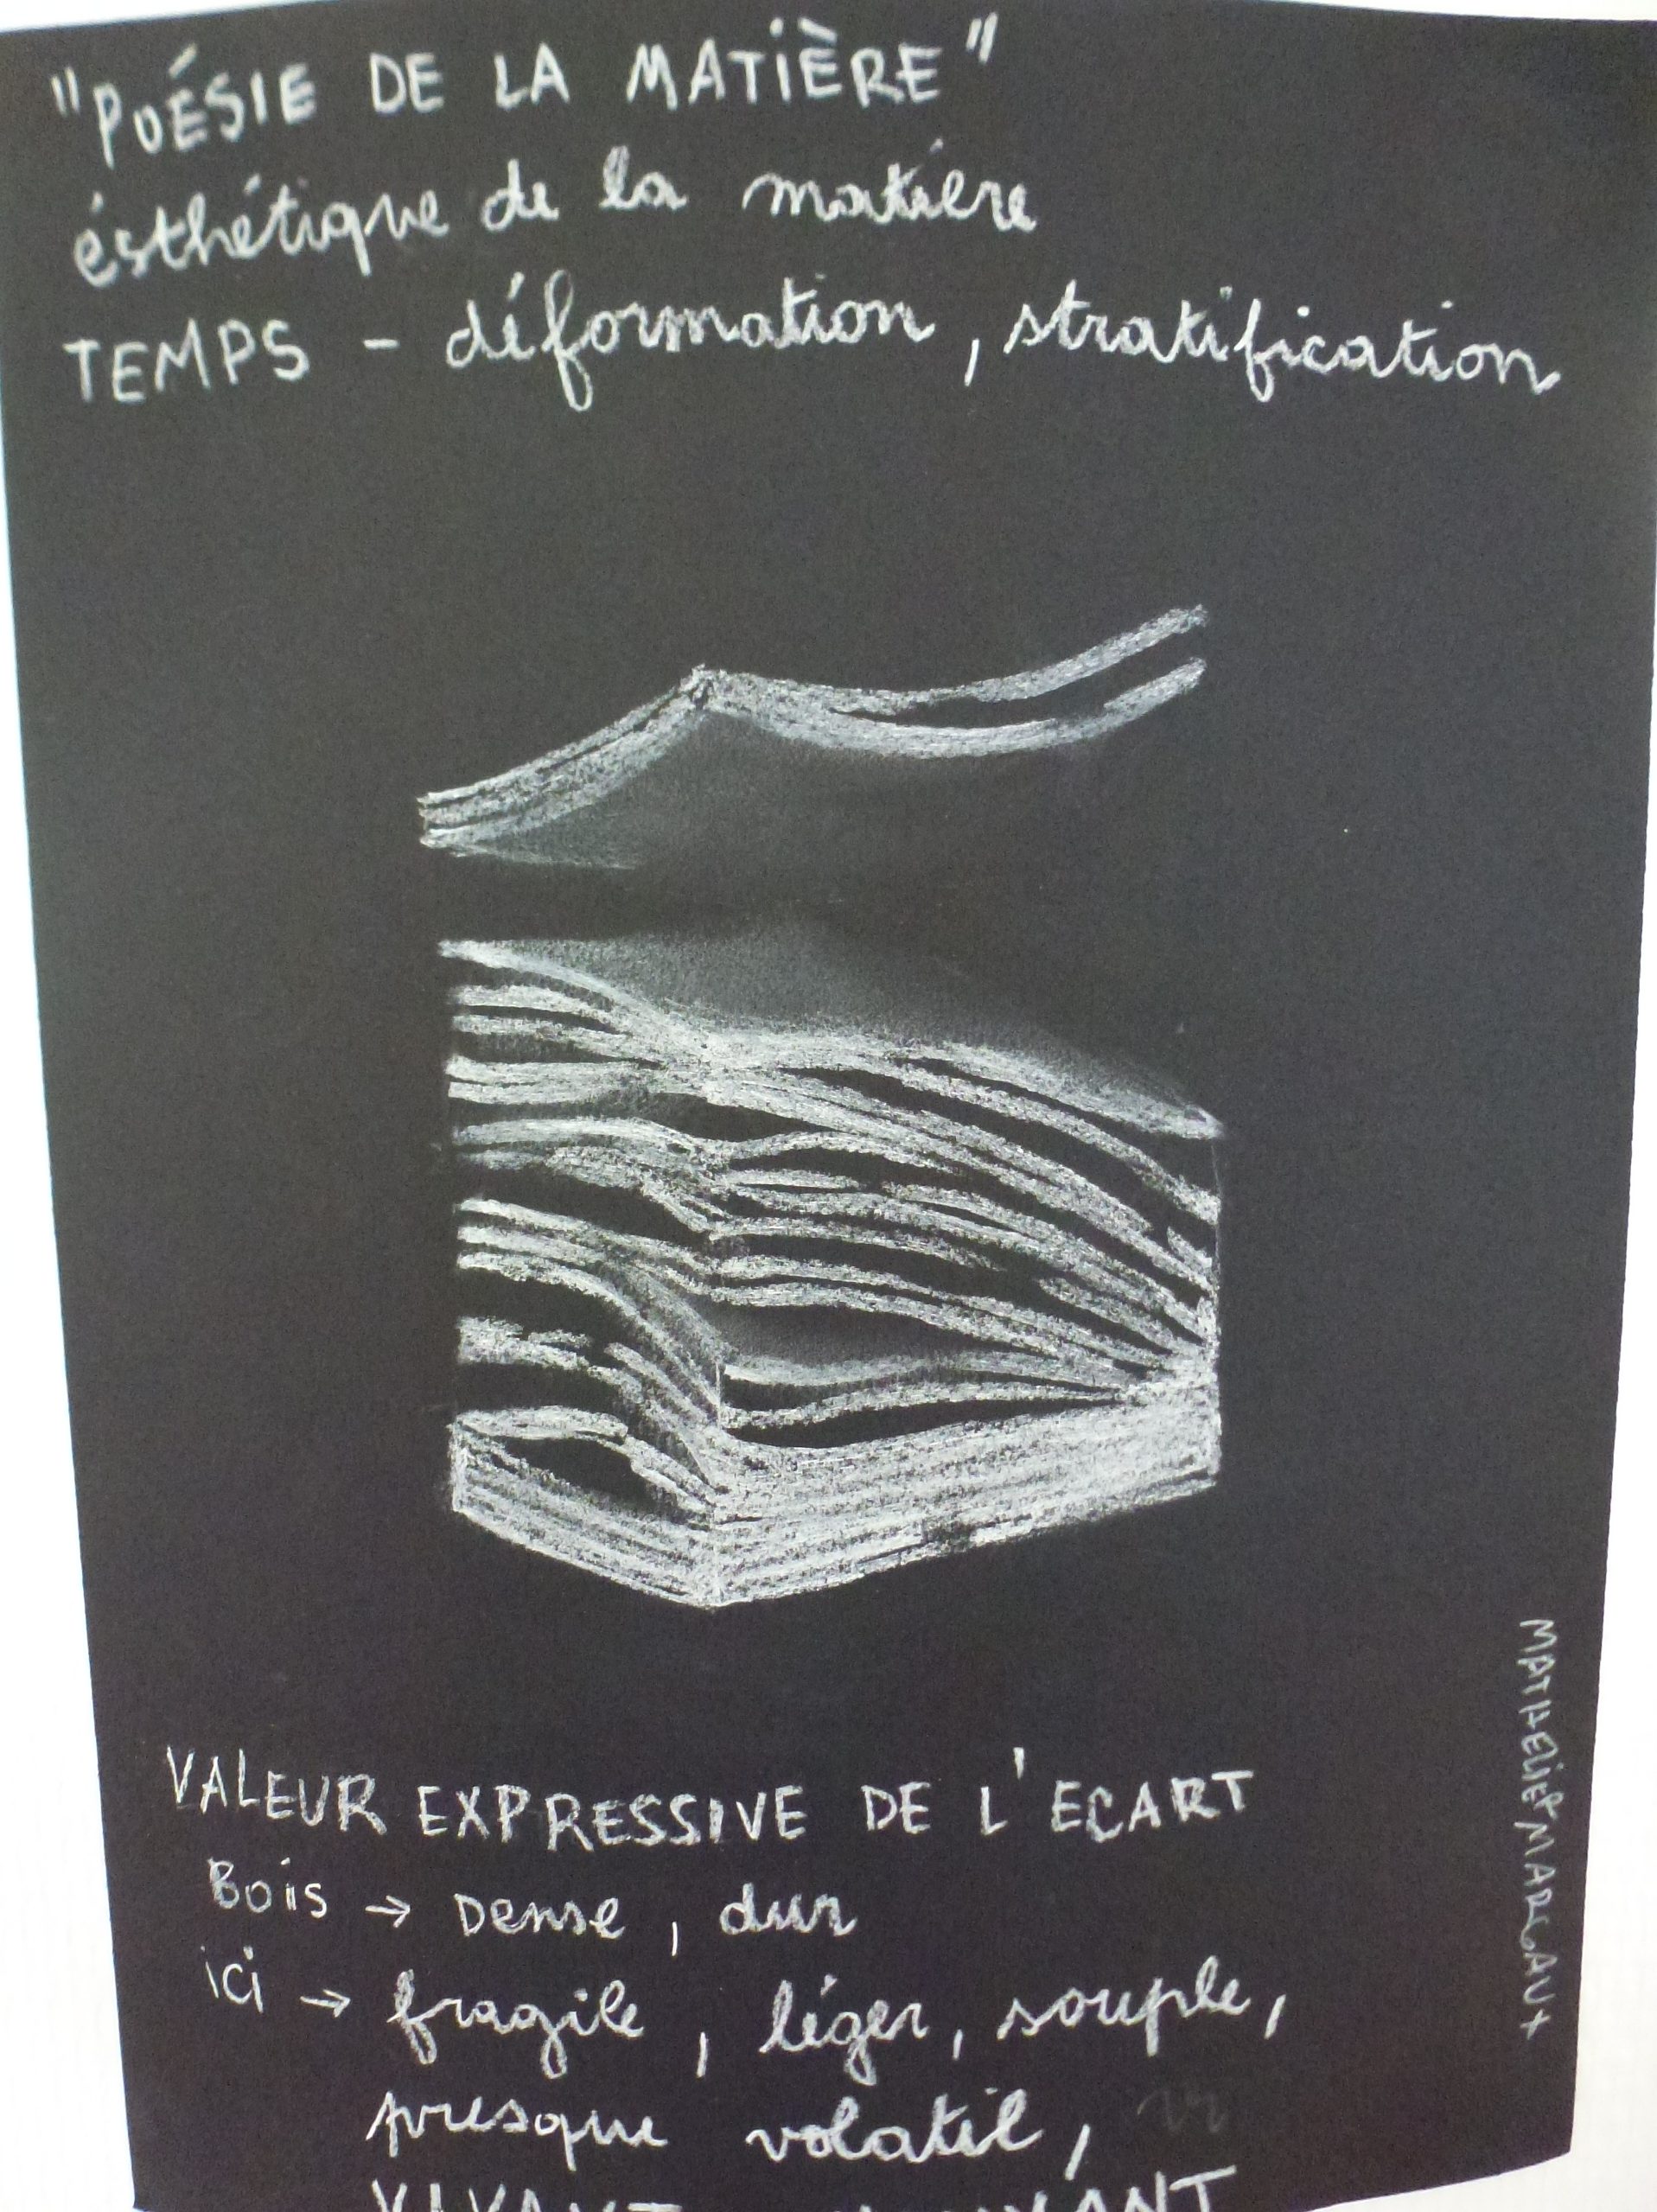 "POÉSIE DE LA MATIÈRE"
ésthétique de la matière
TEMPS - déformation, stratification
VALEUR EXPRESSIVE DE L'ECART
Bois → Dense, dur
ici → fragile, léger, souple,
presque volatil,
VIVANT
MATHELIE & MARGAUX